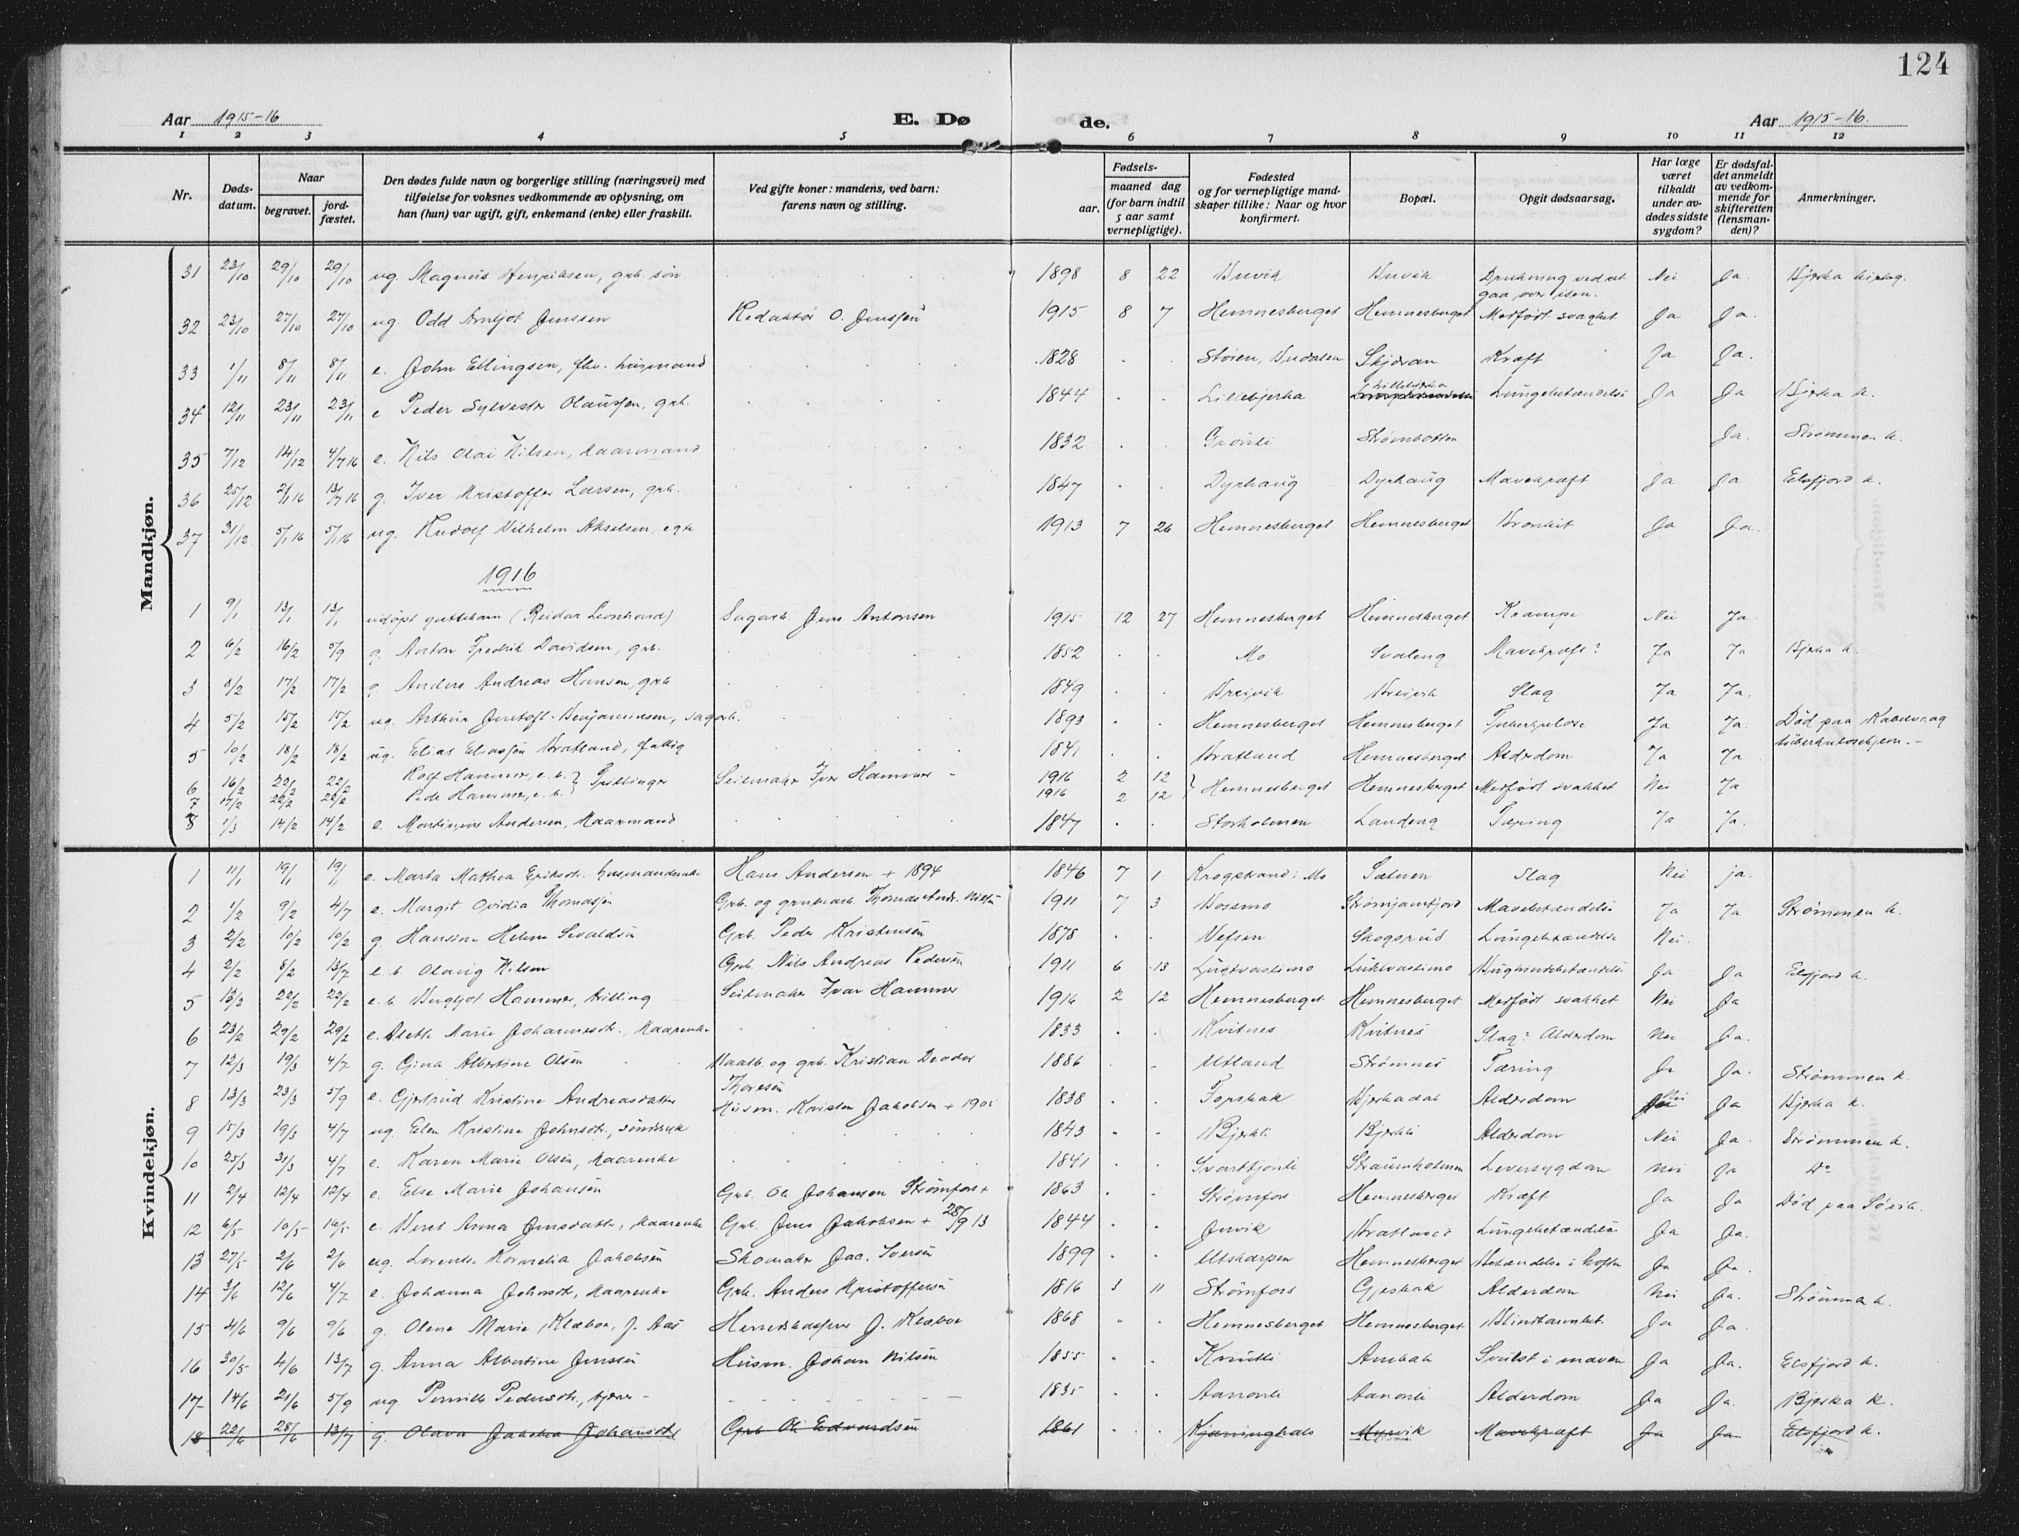 124
Aar 1915-16 E. Dø de. Aar 1915-16.
1 2 3 4 5 6 7 8 9 10 11 12
Nr. Døds-datum. Naar begravet. jord-fæstet. Den dødes fulde navn og borgerlige stilling (næringsvei) med tilføielse for voksnes vedkommende av oplysning, om han (hun) var ugift, gift, enkemand (enke) eller fraskilt. Ved gifte koner: mandens, ved barn: farens navn og stilling. Fødsels- aar. maaned dag (for barn indtil 5 aar samt vernepligtige). Fødested og for vernepligtige mandskaper tillike: Naar og hvor konfirmert. Bopæl. Opgit dødsaarsag. Har læge været tilkaldt under avdødes sidste sygdom? Er dødsfaldet anmeldt av vedkommende for skifteretten (lensmanden)? Anmerkninger.
Mandkjøn.
31 23/10 29/10 29/10 ug. Magnus Henriksen, grb. søn 1898 8 22 Bruvik Bruvik Drukning ved at gaa over isen. Nei Ja. Bjerka kirkeg.
32 23/10 27/10 27/10 ug. Odd Arnljot Jenssen Redaktør O. Jenssen 1915 8 7 Hemnesberget Hemnesberget Medfødt svaghet Ja Ja.
33 1/11 8/11 8/11 e. John Ellingsen, fhv. husmand 1828 Støien, Kræft Ja Ja.
34 12/11 23/11 23/11 e Peder Sylvester Olaussen, grb. 1844 Lillebjerka Lillebjerka Lungebetændelse Ja Ja Bjerka k.
35 7/12 14/12 4/7 16 e. Nils Olai Nilsen, kaarmand 1832 Grønli Strømbotten Ja. Strømmen k.
36 25/12 2/1 16 13/7 16 g. Iver Kristoffer Larsen, grb. 1847 Dyrhaug Dyrhaug Mavekræft Ja Ja Elsfjord k.
37 31/12 5/1 16 5/1 16 ug. Rudolf Vilhelm Akselsen, 1913 7 26 Hemnesberget Hemnesberget Bronkit Ja Ja.
1916
1 9/1 13/1 13/1 udøpt guttebarn (Reidar Leonhard) Sagarb Jens Antonsen 1915 12 27 Hemnesberget Hemnesberget Krampe Nei Ja.
2 6/2 16/2 5/9 g. Anton Fredrik Davidsen, grb. 1852 Mo Svaleng Mavekræft? Ja Ja Bjerka k.
3 8/2 17/2 17/2 g. Anders Andreas Hansen, grb 1849 Breivik Breivik Slag Ja Ja.
4 5/2 15/2 15/2 ug. Arthur Jentoft Benjaminsen, sagarb. 1893 Hemnesberget Hemnesberget Tuberkulose Ja Ja. Død paa Kabelvaag tuberkulosehjem.
5 10/2 18/2 18/2 ug. Elias Eliassen Bratland, fattig 1841 Bratland Hemnesberget Alderdom Ja Ja.
6 16/2 22/2 22/2 Rolf Hammer, e. b. } Trillinger Seilmaker Iver Hammer 1916 2 12 } Hemnesberget Hemnesberget Medfødt svakhet Nei Ja
7 17/2 22/2 22/2 Peder Hammer, e. b. 1916 2 12
8 1/3 14/2 14/2 e. Martinus Andersen, kaarmand 1847 Storholmen Landeng Tæring Ja Ja.
Kvindekjøn.
1 11/1 19/1 19/1 e. Marta Mathea Eriksdt. husmandsenke Hans Andersen + 1894 1846 7 1 Krogstrand i Mo Sæteren Slag Nei ja.
2 1/2 9/2 4/7 e. Margit Ovidia Thomassen Grb. og grubearb. Thomas Andr. Nilsen 1911 7 3 Bossmo Mavebetændelse Ja Ja Strømmen k.
3 2/2 10/2 10/2 g. Hansine Helene Sevaldsen Grb. Peder Kristensen 1878 Vefsen Skogsrud Lungebetændelse Nei.
4 2/2 8/2 13/7 e. b. Olaug Nilsen Grb. Nils Andreas Pedersen 1911 6 13 Luktvastimo Luktvastimo Bughindebetændelse Ja Ja Elsfjord k.
5 13/2 22/2 22/2 e. b Bergljot Hammer, trilling Seilmaker Ivar Hammer 1916 2 12 Hemnesberget Hemnesberget Medfødt svakhet Nei Ja
6 23/2 29/2 29/2 e. Aleth Marie Johannesdt. kaarenke 1833 Kvitnes Kvitnes Slag? Alderdom Nei Ja.
7 12/3 19/3 4/7 g. Gina Albertine Olsen Baatb. og grb. Kristian Deodor Thoresen 1886 Utland Strømnes Tæring Ja Ja. Strømmen k.
8 13/3 23/3 5/9 e. Gjertrud Kristine Andreasdatter Husm. Kristen Jakobsen + 1905 1838 Fopsbak Bjerkadal Alderdom Nei Ja Bjerka k.
9 15/3 19/3 4/7 ug. Elen Kristine Johnsdt., sindssyk 1843 Bjerkli Bjerkli Alderdom Nei Ja. Strømmen k.
10 25/3 31/3 4/7 e. Karen Marie Olsen, kaarenke 1841 Svarttjønli Straumholmen Leversygdom Nei Ja Do
11 2/4 12/4 12/4 e. Else Marie Johansen Grb. Ole Johansen Strømfors + 1863 Strømfors Hemnesberget Kræft Ja Ja Død paa Sørvik.
12 6/5 10/5 16/5 e. Beret Anna Jensdatter, kaarenke Grb. Jens Jakobsen + 28/9 13 1844 Jervik Bratland Lungebetændelse Ja Ja.
13 27/5 2/6 2/6 ug. Lorentse Kornelia Jakobsen Skomaker Jac. Iversen 1899 Utskarpen Hemnesberget Betændelse i hoften Ja Ja.
14 3/6 12/6 4/7 e. Johanna Johnsdt., kaarenke Grb. Anders Kristoffersen 1816 3 11 Strømfors Gjesbak Alderdom Nei Ja. Strømmen k.
15 4/6 9/6 9/6 g. Olene Marie Klæboe, f. Aas Herredskasserer J. Klæboe 1868 Hemnesberget Hemnesberget Blindtarmbet. Ja Ja.
16 30/5 4/6 13/7 g. Anna Albertine Jenssen Husm. Johan Nilsen 1855 Knutli Svulst i maven Ja Ja. Elsfjord k.
17 14/6 21/6 5/9 ug Pernille Pedersdt., tjener 1835 Aanonli Aanonli Alderdom Ja Ja. Bjerka k.
18 22/6 28/6 13/7 g. Olava Jakobea Johansdt Grb Ole Edvardsen 1861 Kjærringhals Myrvik Mavekræft Ja Ja Elsfjord k.